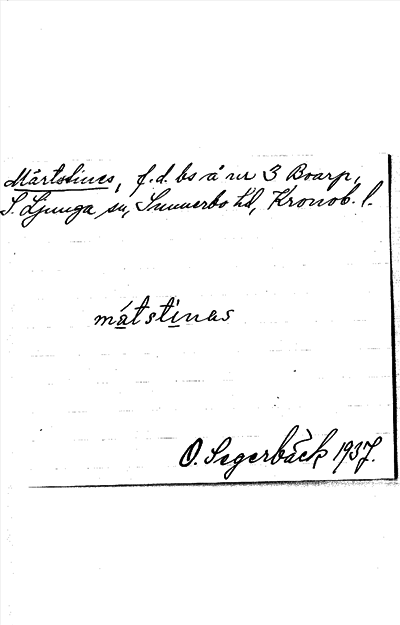 Mårtstines, f.d. bs å nr 3 Boarp,
S. Ljunga sn, Sunnerbo hd, Kronob. l.
mátstìnas
O. Segerbäck 1937.